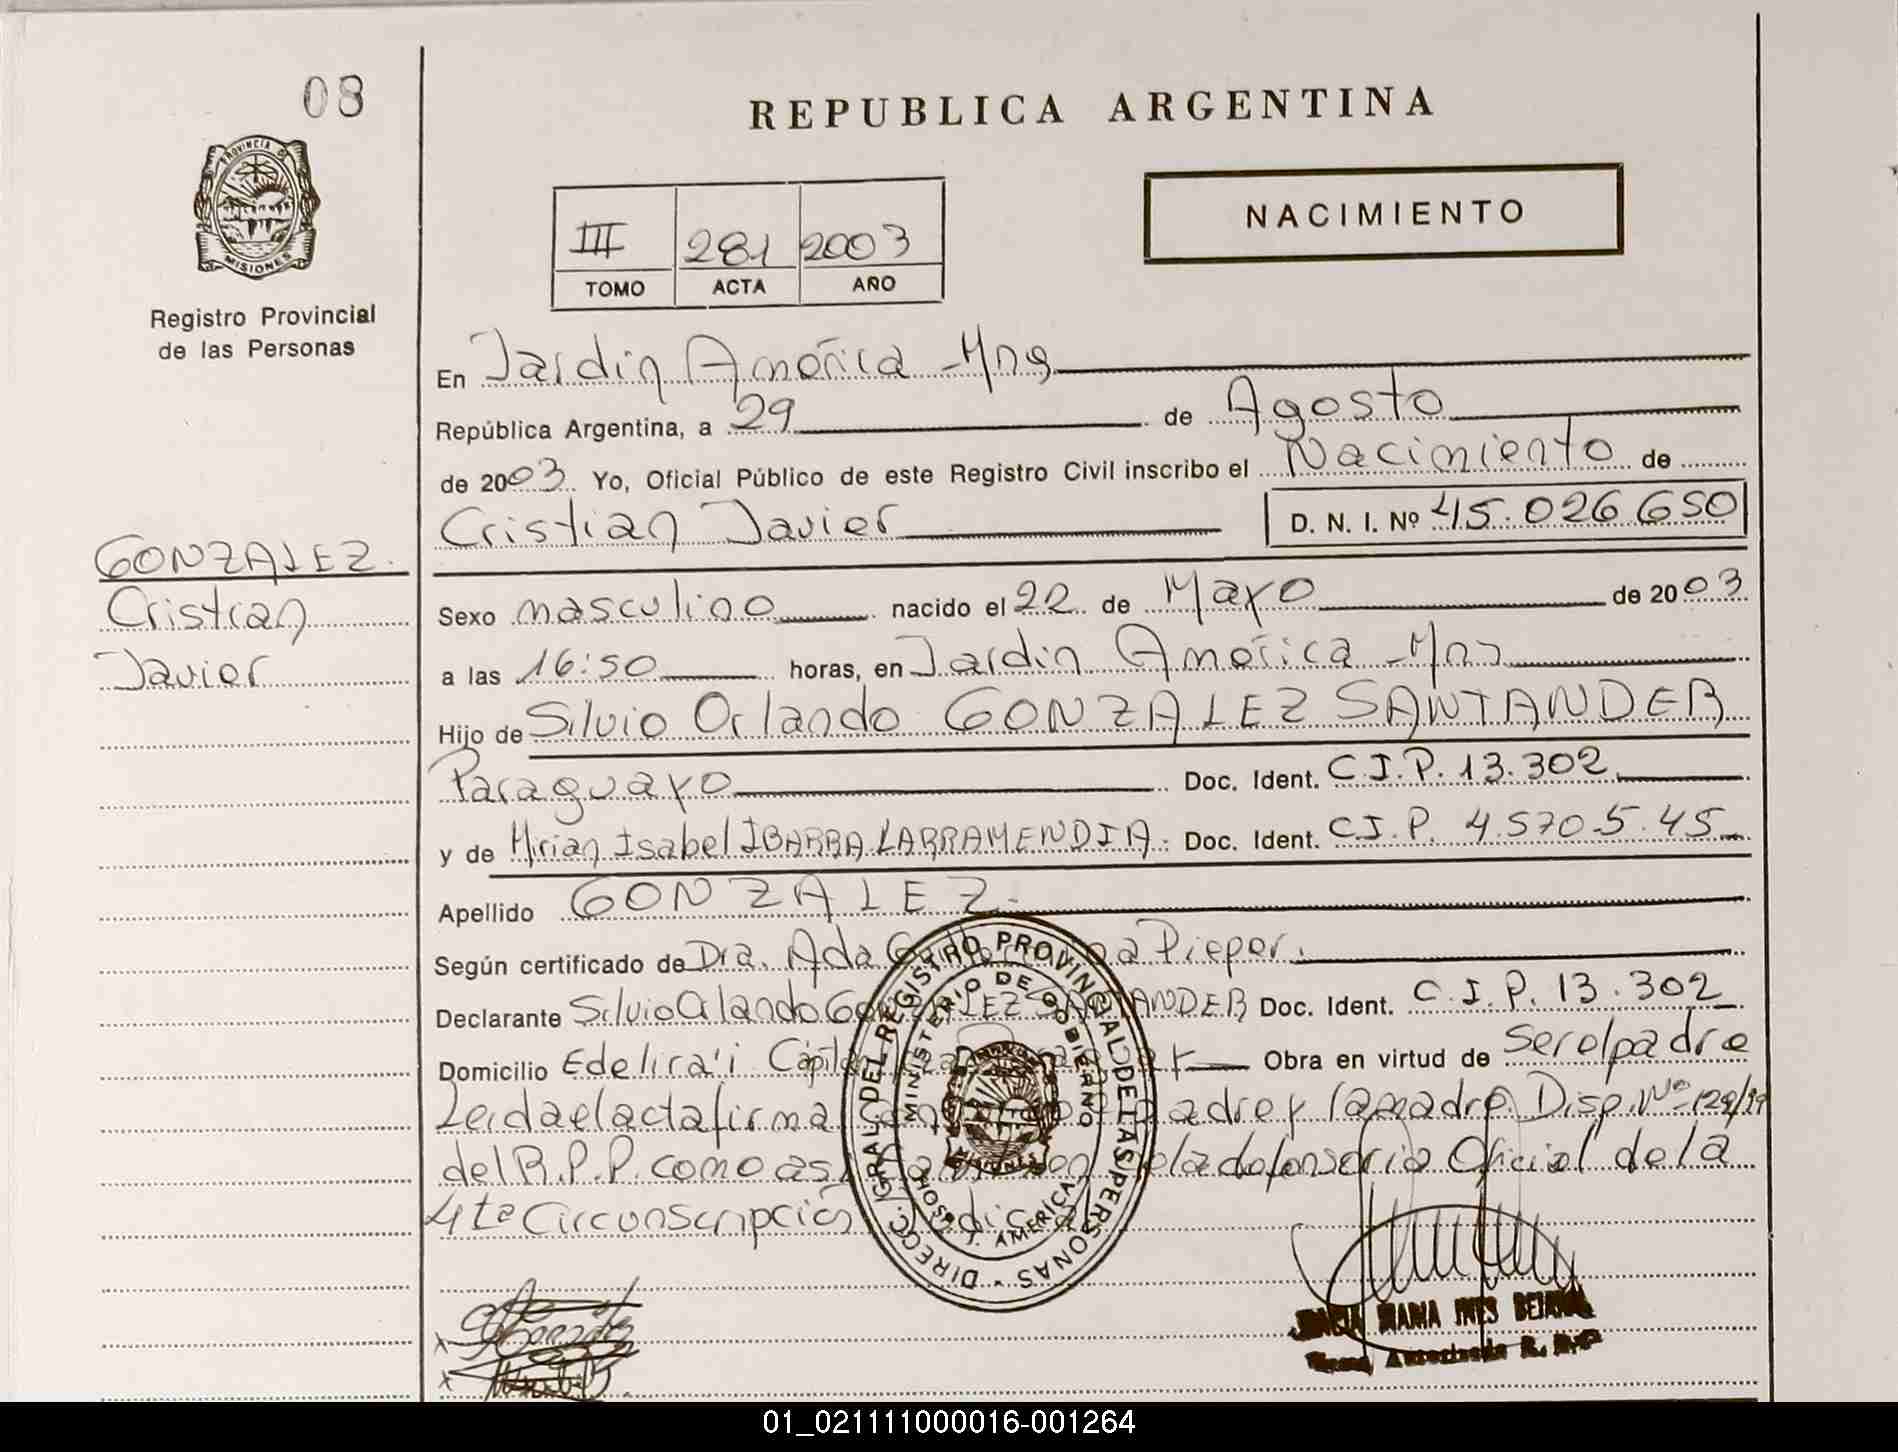 08
PROVINCIA D
MISIONES
Registro Provincial
de las Personas
REPUBLICA ARGENTINA
NACIMIENTO
III 281 2003
TOMO ACTA AÑO
En Jardin América - Mns
República Argentina, a 29 de Agosto
de 2003 Yo, Oficial Público de este Registro Civil inscribo el Nacimiento de
Cristian Javier D. N. I. Nº 45.026.650
GONZALEZ.
Cristian
Javier
Sexo masculino nacido el 22 de Mayo de 2003
a las 16:50 horas, en Jardin América - Mns
Hijo de Silvio Orlando GONZALEZ SANTANDER
Paraguayo Doc. Ident. C.I.P. 13.302
y de Mirian Isabel IBARRA LARRAMENDIA. Doc. Ident. C.I.P. 4.570.5.45
Apellido GONZALEZ.
Según certificado de Dra. Ada Pieper.
Declarante Silvio Orlando GONZALEZ SANTANDER Doc. Ident. C.I.P. 13.302
Domicilio Edelira'i Obra en virtud de ser el padre
Leida el acta firma padre y la madre. Disp. Nº 129/99
del R.P.P. como asi de la defensoria Oficial de la
4ta Circunscripción
DIRECC. GRAL. DEL REGISTRO PROVINCIAL DE LAS PERSONAS
MINISTERIO DE GOBIERNO
MISIONES
HOSP. J. AMERICA
MARIA INES
01_021111000016-001264